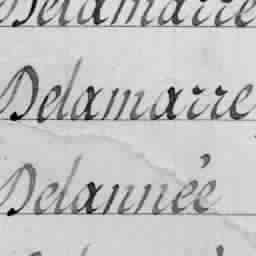 Delamarre
Delamarre
Delannée